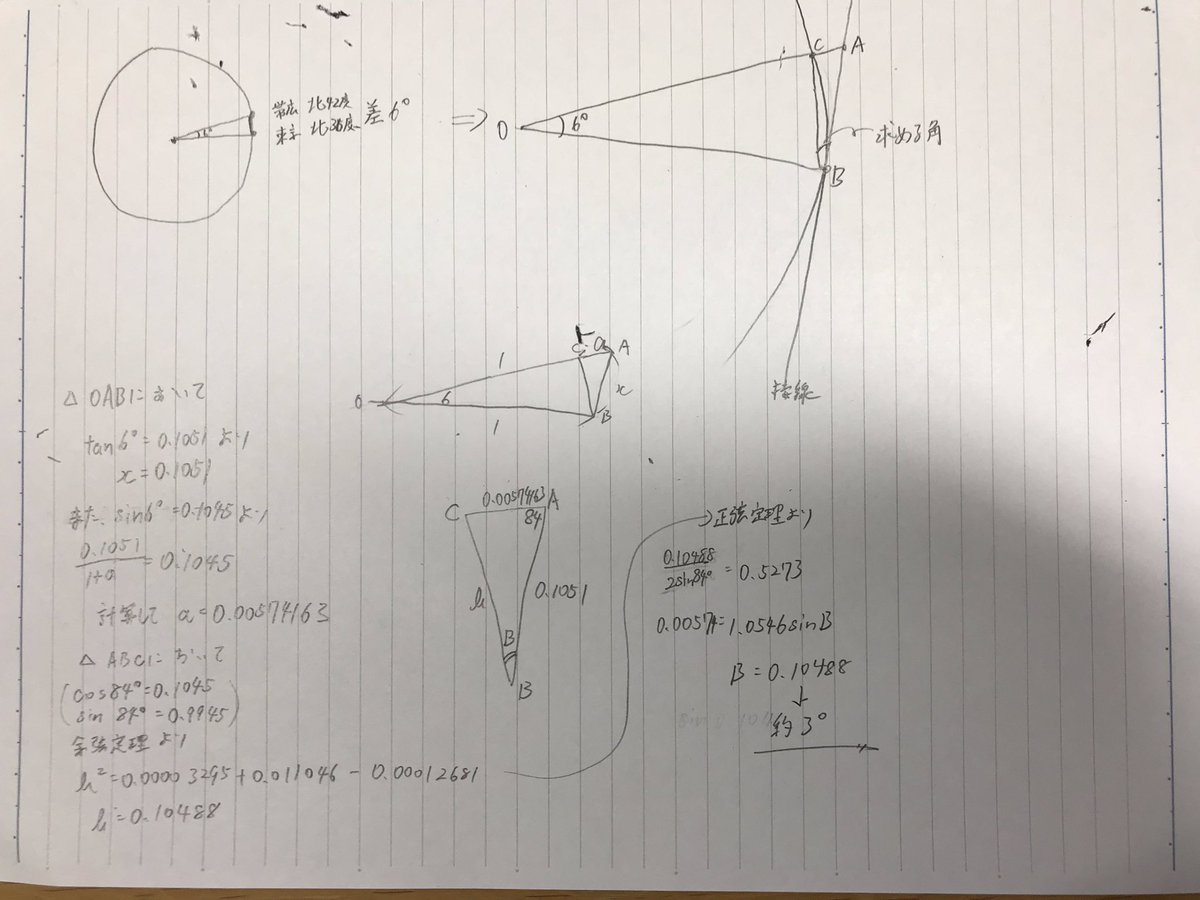 帯広 北42度
東京 北36度
差6°
6°
⇒
O
6°
1
C
A
B
求める角
接線
O
6
1
1
C
a
A
x
B
△OABにおいて
tan6°=0.1051より
x=0.1051
また、sin6°=0.1045より
0.1051/1+a=0.1045
計算して a=0.00574163
△ABCにおいて
(cos84°=0.1045
sin 84°=0.9945)
余弦定理より
h²=0.00003295+0.011046-0.00012681
h=0.10488
C
0.00574163
A
84
h
0.1051
B
B
→正弦定理より
0.10488/2sin84°=0.5273
0.00574=1.0546sinB
B=0.10488
↓
約3°